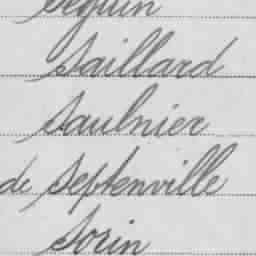 Seguin
Saillard
Saulnier
de Septenville
Sorin